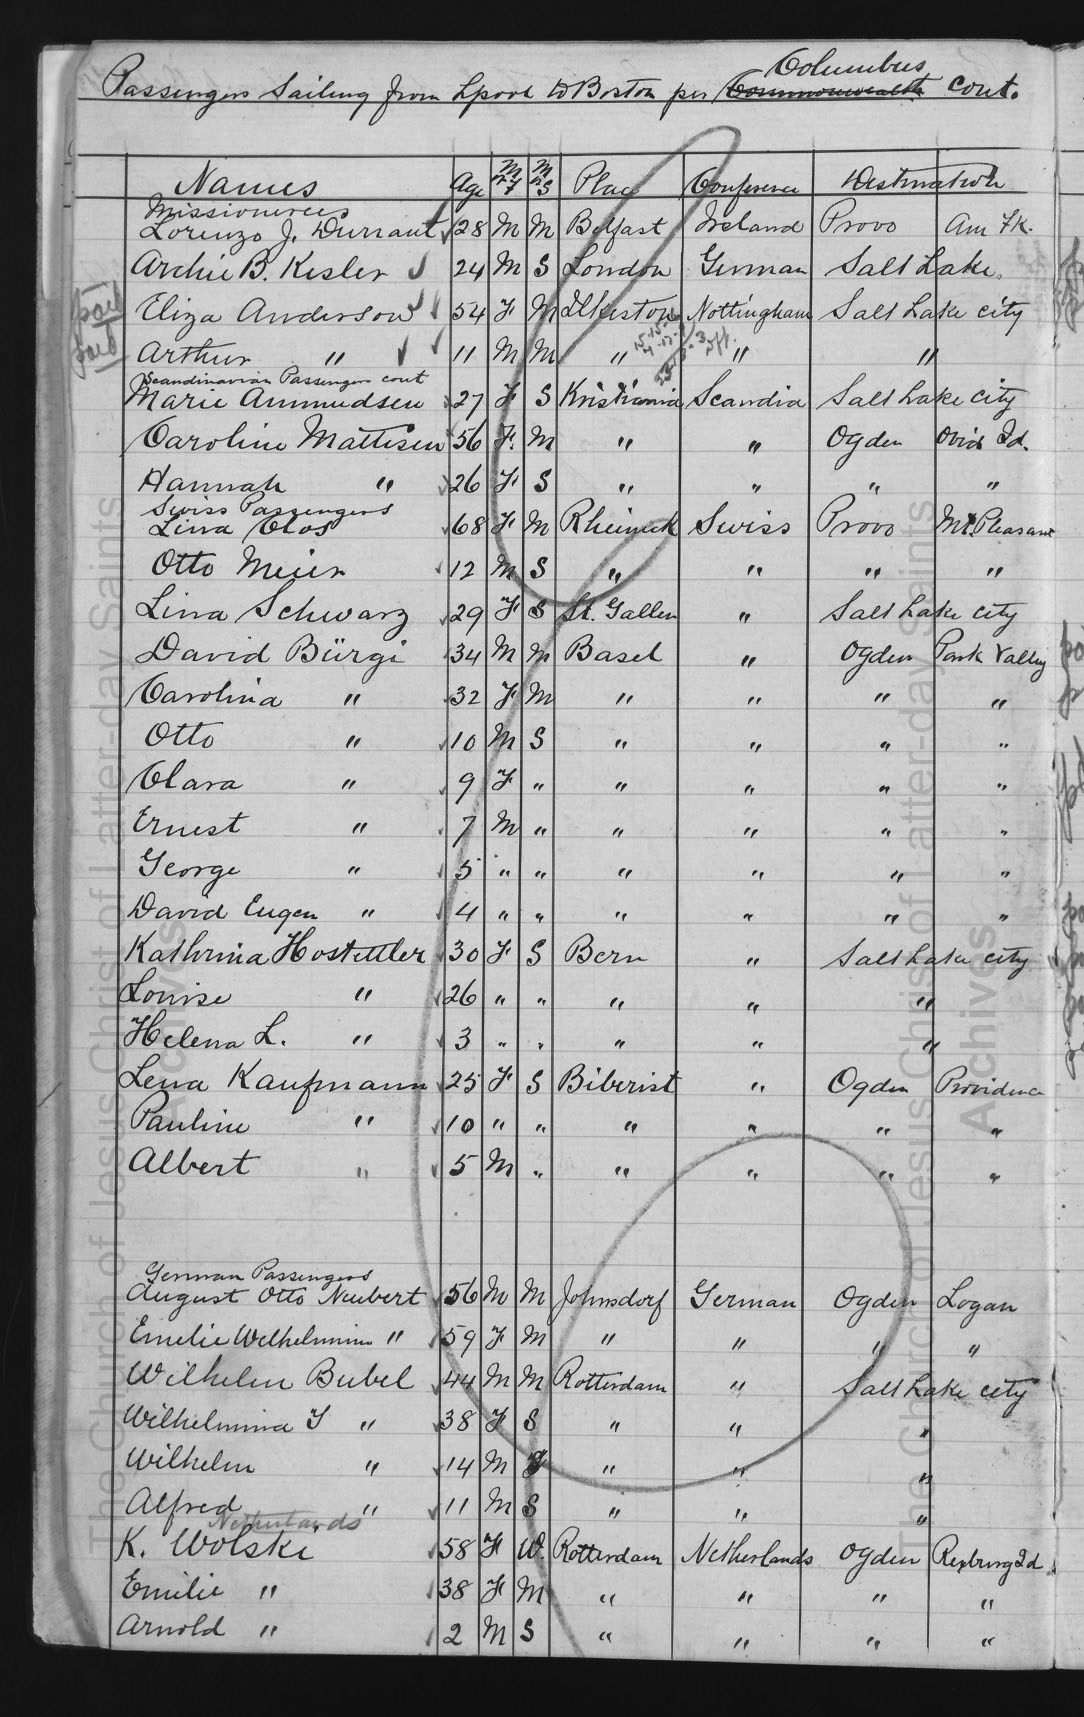 Columbus
Passengers Sailing from Lpool to Boston per Commonwealth cont.
Names Age M or F M or S Place Conference Destination
Missionaries
Lorenzo J. Durrant 28 M M Belfast Ireland Provo Am Fk.
Archie B. Kesler 24 M S London German Salt Lake
paid Eliza Anderson 54 F M Ilkeston Nottingham Salt Lake city
paid Arthur " 11 M M " " "
Scandinavian Passengers cont
Marie Ammudsen 27 F S Kristiania Scandia Salt Lake city
Caroline Mattisen 56 F. M " " Ogden Ovid Id.
Hannah " 26 F S " " " "
Swiss Passengers
Lina Clos 68 F M Rheineck Swiss Provo Mt. Pleasant
Otto Meier 12 M S " " " "
Lina Schwarz 29 F S St. Gallen " Salt Lake city
David Bürgi 34 M M Basel " Ogden Park Valley
Carolina " 32 F M " " " "
Otto " 10 M S " " " "
Clara " 9 F " " " " "
Ernest " 7 M " " " " "
George " 5 " " " " " "
David Eugen " 4 " " " " " "
Kathrina Hostettler 30 F S Bern " Salt Lake city
Louise " 26 " " " " "
Helena L. " 3 " " " " "
Lena Kaufmann 25 F S Biberist " Ogden Providence
Pauline " 10 " " " " " "
Albert " 5 M " " " " "
German Passengers
August Otto Neubert 56 M M Johnsdorf German Ogden Logan
Emelie Wilhelmina " 59 F M " " " "
Wilhelm Bubel 44 M M Rotterdam " Salt Lake city
Wilhelmina " 38 F S " " "
Wilhelm " 14 M " " "
Alfred " 11 M S " " "
Netherlands
K. Wolski 58 F W. Rotterdam Netherlands Ogden Rexburg Id
Emilie " 38 F M " " " "
Arnold " 2 M S " " " "
The Church of Jesus Christ of Latter-day Saints
Archives
The Church of Jesus Christ of Latter-day Saints
Archives